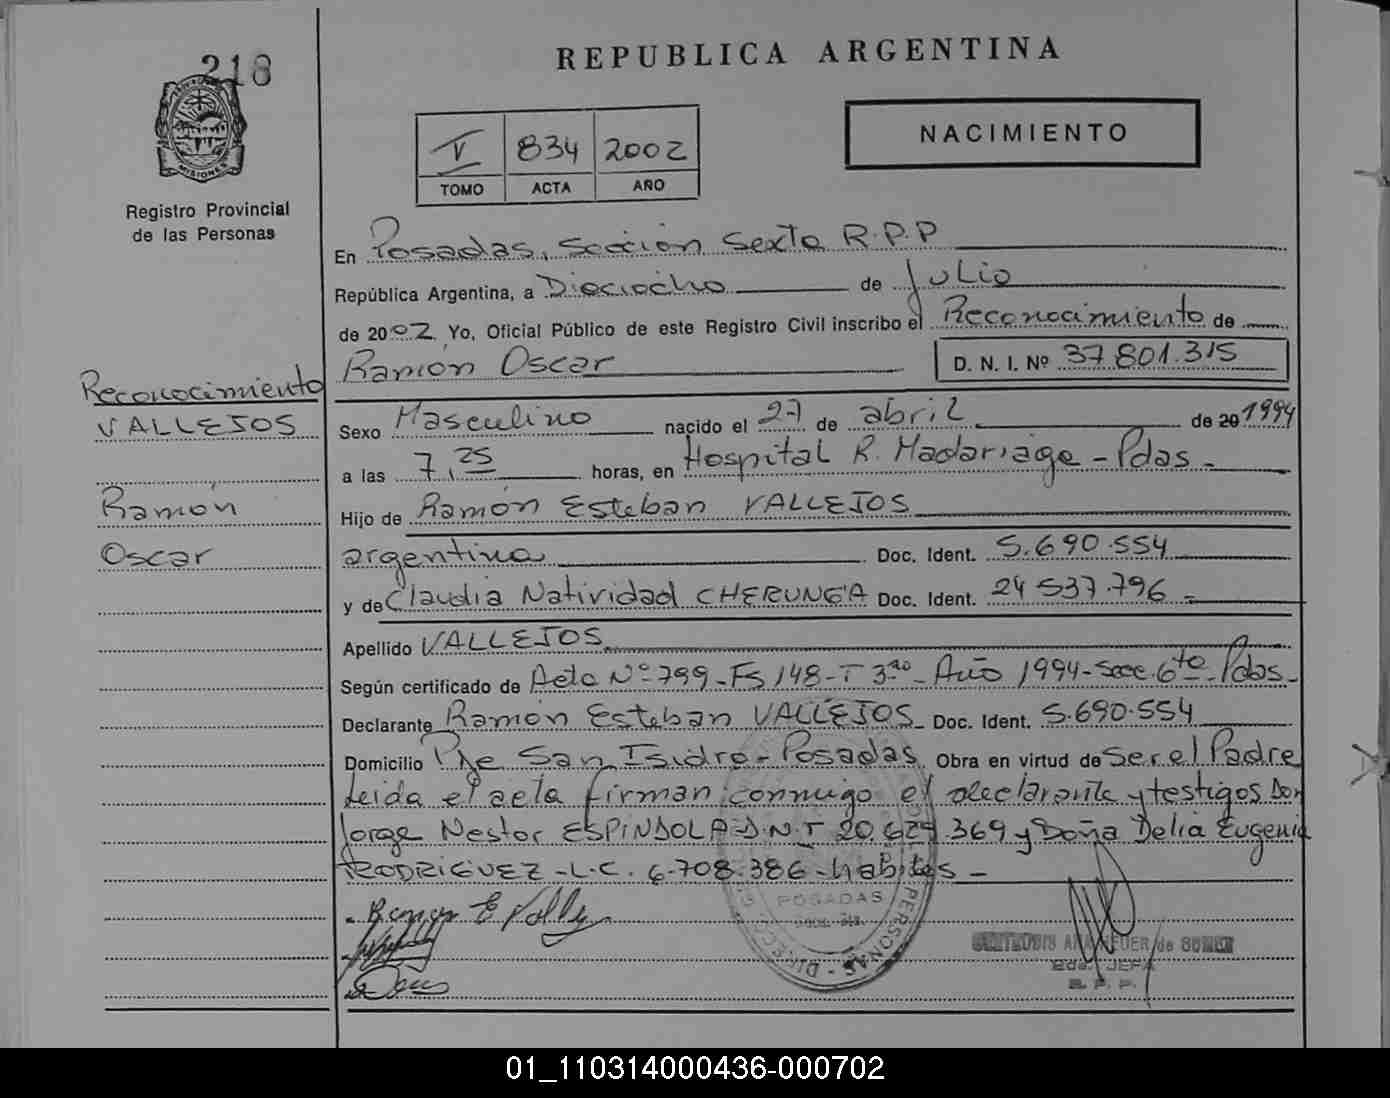 218
REPUBLICA ARGENTINA
MISIONES
Registro Provincial
de las Personas
V 834 2002
TOMO ACTA AÑO
NACIMIENTO
En Posadas, Sección Sexta R.P.P
República Argentina, a Dieciocho de Julio
de 2002 Yo, Oficial Público de este Registro Civil inscribo el Reconocimiento de
Ramón Oscar D. N. I. Nº 37.801.315
Reconocimiento
VALLEJOS
Ramón
Oscar
Sexo Masculino nacido el 27 de abril de 20 1994
a las 7,25 horas, en Hospital R. Madariaga - Pdas -
Hijo de Ramón Esteban VALLEJOS
argentina Doc. Ident. 5.690.554
y de Claudia Natividad CHERUNGA Doc. Ident. 24 537.796 -
Apellido VALLEJOS
Según certificado de Acta Nº 799 - Fs 148 - T 3ro - Año 1994 - Secc. 6ta - Pdas -
Declarante Ramón Esteban VALLEJOS Doc. Ident. 5.690.554
Domicilio Pje San Isidro - Posadas Obra en virtud de Ser el Padre
Leida el acta firman conmigo el declarante y testigos Don
Jorge Nestor ESPINDOLA - D.N.I 20.629.369 y Doña Delia Eugenia
RODRIGUEZ - L.C. 6.708.386 - habiles -
Ramon E Vallejos
POSADAS
PERSONAS
JEFA
R. P. P.
01_110314000436-000702